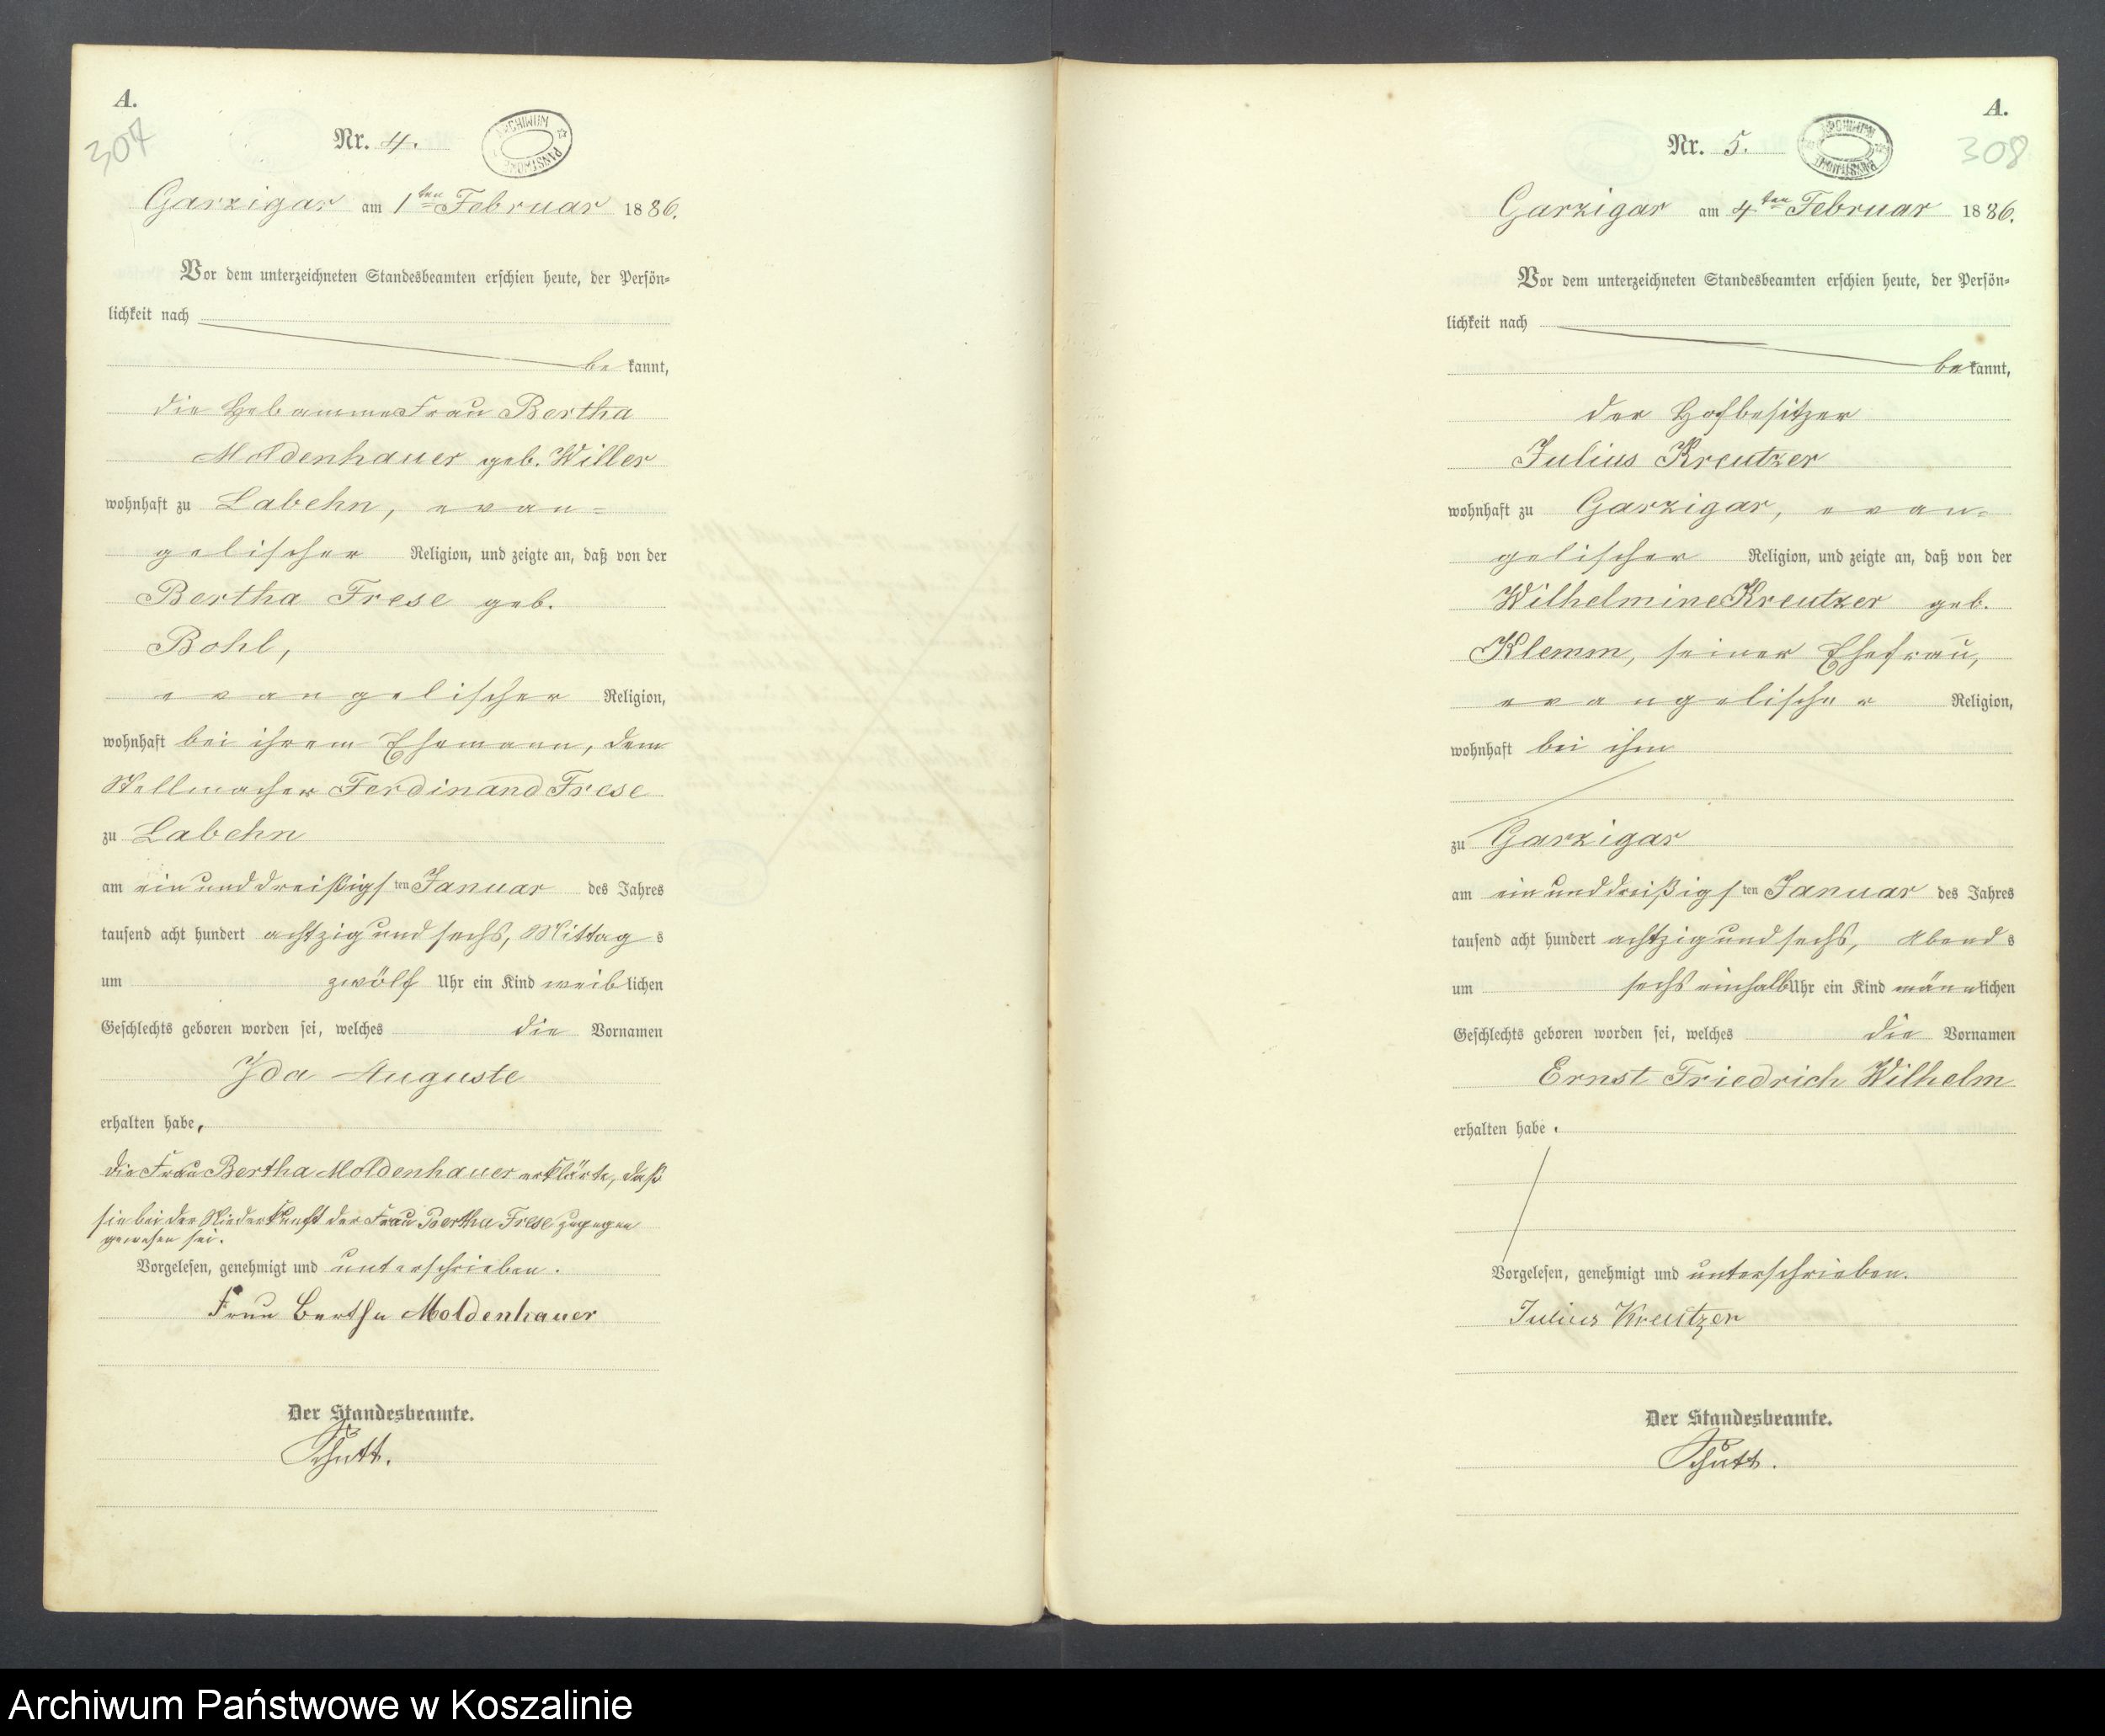 A.
307
Nr. 4.
ARCHIWUM PAŃSTWOWE
Garzigar am 1ten Februar 1886.
Vor dem unterzeichneten Standesbeamten erschien heute, der Persön-
lichkeit nach
be kannt,
die Hebamme Frau Bertha
Moldenhauer geb. Willer
wohnhaft zu Labehn, evan-
gelischer Religion, und zeigte an, daß von der
Bertha Frese geb.
Bohl,
evangelischer Religion,
wohnhaft bei ihrem Ehemann, dem
Stellmacher Ferdinand Frese
zu Labehn
am ein und dreißigsten Januar des Jahres
tausend acht hundert achtzig und sechs, Mittags
um zwölf Uhr ein Kind weiblichen
Geschlechts geboren worden sei, welches die Vornamen
Ida Auguste
erhalten habe,
die Frau Bertha Moldenhauer erklärte, daß
sie bei der Niederkunft der Frau Bertha Frese zugegen
gewesen sei.
Vorgelesen, genehmigt und unterschrieben.
Frau Bertha Moldenhauer
Der Standesbeamte.
Schutt.
A.
308
Nr. 5.
ARCHIWUM PAŃSTWOWE
Garzigar am 4ten Februar 1886.
Vor dem unterzeichneten Standesbeamten erschien heute, der Persön-
lichkeit nach
be kannt,
der Hofbesitzer
Julius Kreutzer
wohnhaft zu Garzigar, evan-
gelischer Religion, und zeigte an, daß von der
Wilhelmine Kreutzer geb.
Klemm, seiner Ehefrau,
evangelischer Religion,
wohnhaft bei ihm
zu Garzigar
am ein und dreißigsten Januar des Jahres
tausend acht hundert achtzig und sechs, Abends
um sechs einhalb Uhr ein Kind männlichen
Geschlechts geboren worden sei, welches die Vornamen
Ernst Friedrich Wilhelm
erhalten habe.
Vorgelesen, genehmigt und unterschrieben.
Julius Kreutzer
Der Standesbeamte.
Schutt.
Archiwum Państwowe w Koszalinie